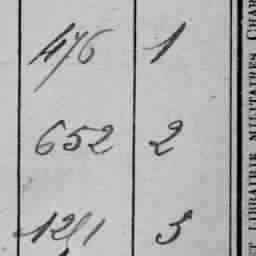 476 1
652 2
1291 3
ET LIBRAIRIE MILITAIRES CHAR